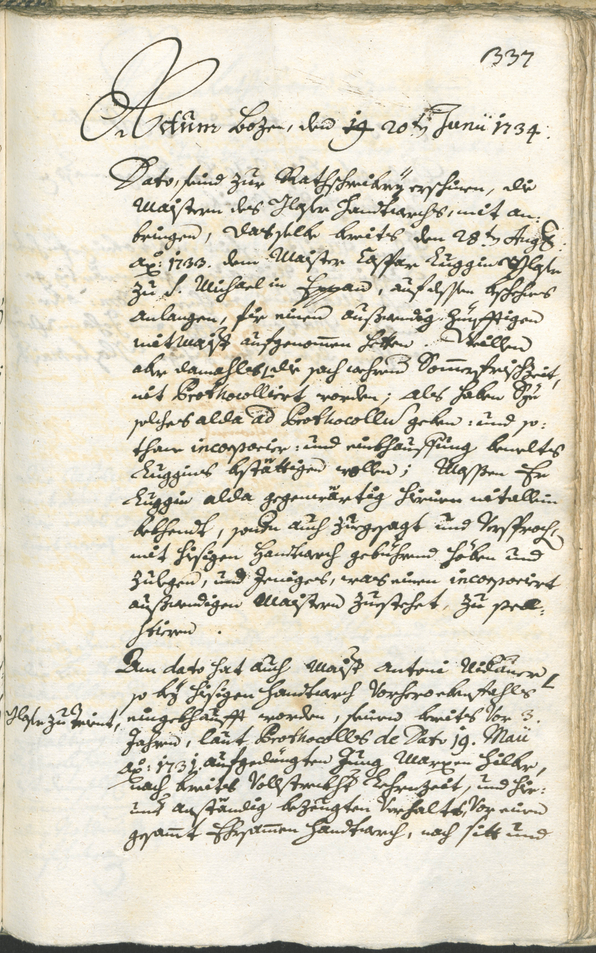 337
Actum Bozen, den 19 20ten Junii 1734.
Dato, seind zur Rathschreiberey erschinen, die
Maistern des Glaser Handtwerchs, mit an-
bringen, dass selbe bereits den 28ten Aug:
ao: 1733. dem Maister Caspar Kuggin Glaser
zu S. Michael in Eppan, auf dessen beschehens
anlangen, für einen ausswendig Zünfftigen
mitmaister aufgenommen hetten. Weillen
aber damahles, die sach wehrend Sommerfrischzeit,
nit Prothocolliert worden; als haben Sye
solches alda ad Prothocollum geben: und so-
thane incorporier: und einkhauffung bemelts
Kuggins bestättigen wollen; Massen Er
Kuggin alda gegenwärtig hierinen nit allein
bekhendt, sonder auch zuegesagt und versproch,
mit hiesigen Handtwerch gebührend heben und
zulegen, und Jeniges, was einen incorporiert
ausswendigen Maistern zuestehet, zu prae-
stieren.
Am dato hat auch Maister Antoni
so bey hiesigen Handtwerch vorhero ebenfahls
Glaser zu Trient,
eingekhaufft worden, seinen bereits vor 3.
Jahren, laut Prothocolles de Dato 19. Maii
ao: 1731. aufgedingten Jung Marxen Hilber,
nach bereits vollstreckhter Lehrnzeit, und hier-
und anständig bezeugten verhalts, vor einen
gesammt Ehrsammen Handtwerch, nach sitt und